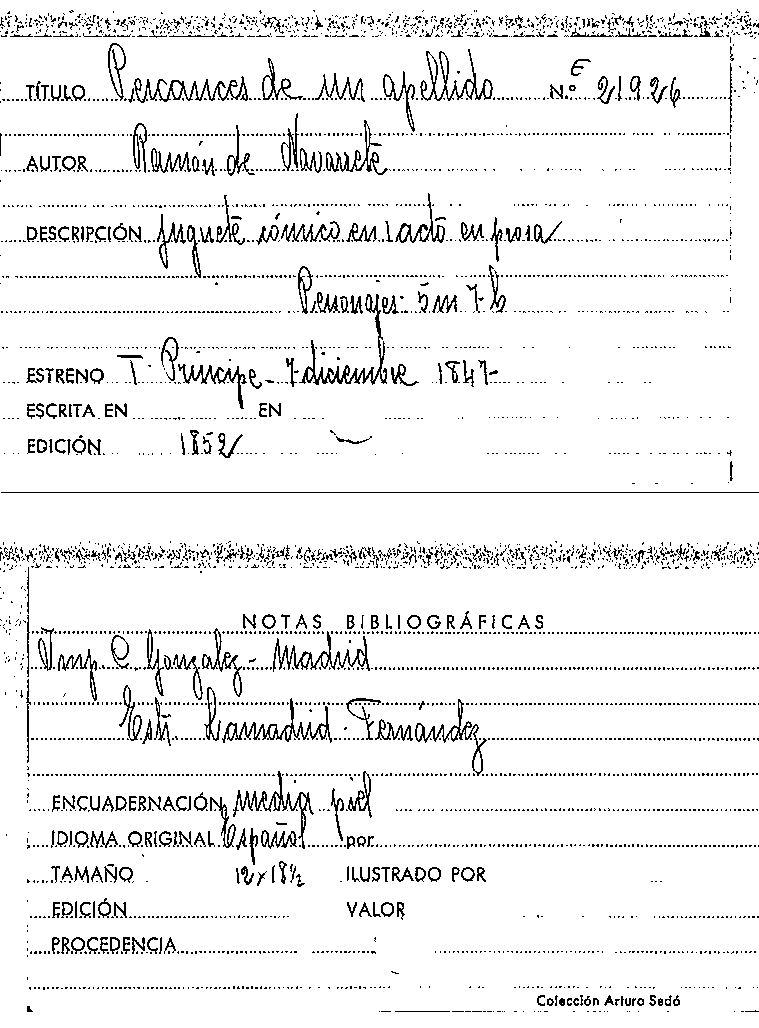 TÍTULO Percances de un apellido N.º E 21926
AUTOR Ramón de Navarrete
DESCRIPCIÓN juguete cómico en 1 acto en prosa
Personajes - 5 m 7 h
ESTRENO T. Príncipe - 7 diciembre 1847-
ESCRITA EN EN
EDICIÓN 1852
NOTAS BIBLIOGRÁFICAS
Imp C. Gonzalez - Madrid
Estr. Lamadrid - Fernández
ENCUADERNACIÓN media piel
IDIOMA ORIGINAL Español por
TAMAÑO 12 x 18½ ILUSTRADO POR
EDICIÓN VALOR
PROCEDENCIA
Colección Arturo Sedó